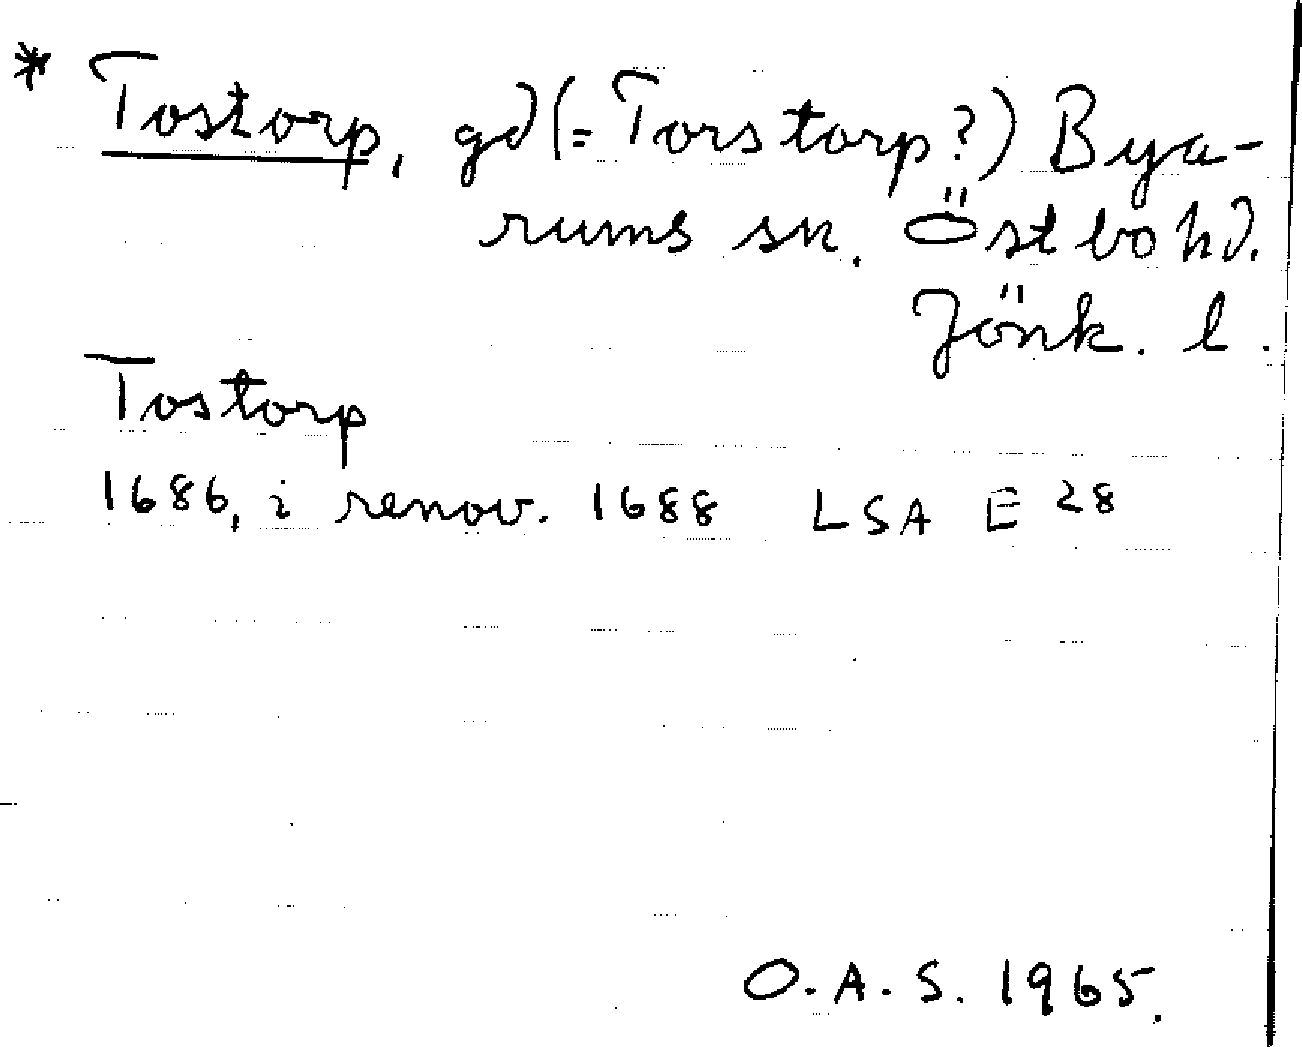 * Tostorp, gd (= Torstorp?) Bya-
rums sn. Östbo hd.
Jönk. l.
Tostorp
1686, i renov. 1688 LSA E 28
O.A.S. 1965.